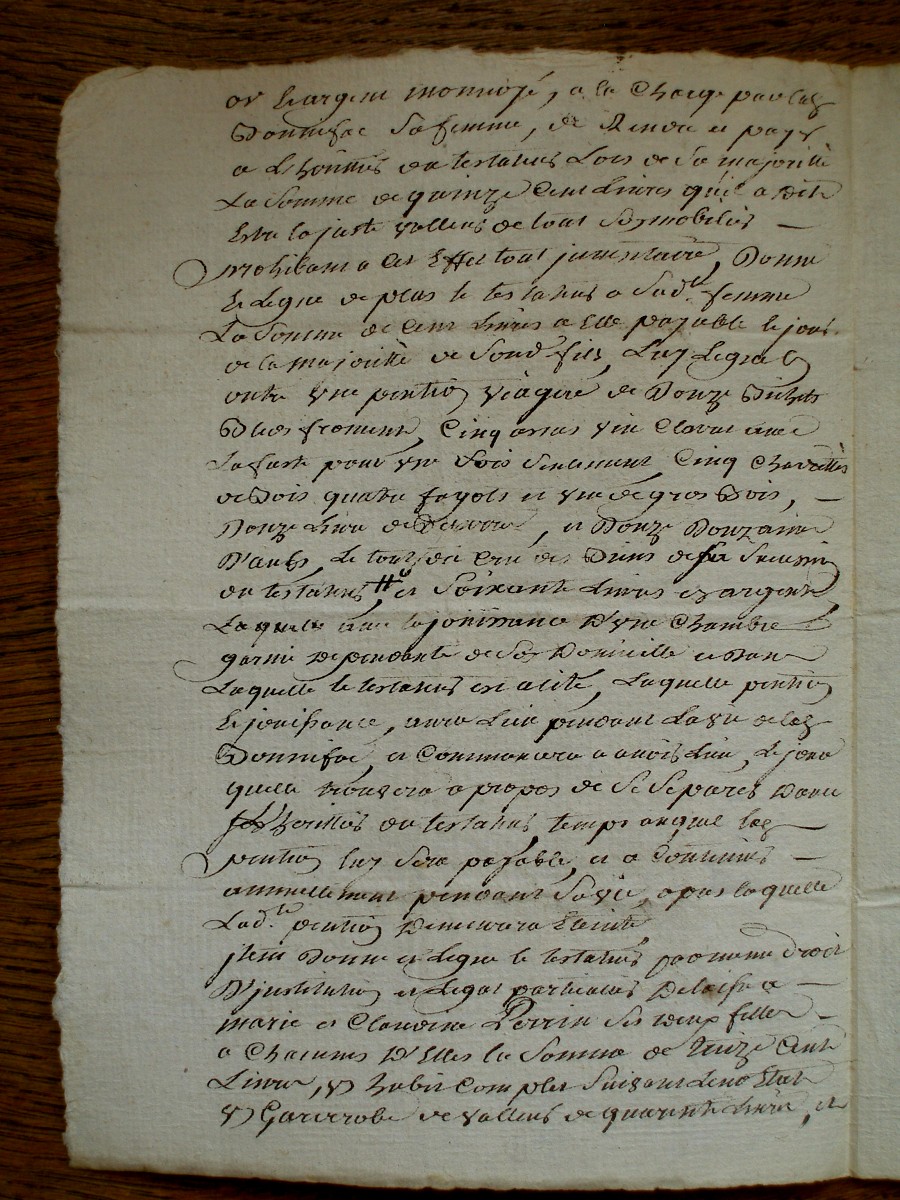 or et argent monnoyé, a la Charge par lad.
Bonnefac sa femme, de Rendre et payer
a L'héritier du testateur Lors de Sa majorité
La Somme de quinze Cent Livres qu'il a dit
Estre la juste valleur de tout Ses mobiliers
prohibant a cet Effet tout inventaire, Donne
et Legue de plus le testateur a Sad.te femme
La Somme de Cent Livres a Elle payable le jour
de la majorité de Sond. fils, Luy Legue
outre une pention viagere de Douze Bichets
Bled froment, Cinq anées vin Clairet avec
La fuste pour une fois Seulement, Cinq Charettes
de Bois quatre fagots et une de gros Bois,
Douze Livres de Beurre, et Douze Douzaines
D'œufs, Le tout du Cru des Biens de la Succession
du testateur, et Soixante Livres en argent
Laquelle avec la jouissance D'une Chambre
garnie Dependante de Ses Domicille et Dans
Laquelle le testateur est alité, Laquelle pention
et jouissance, aura Lieu pendant La vie de lad.
Bonnefac, et Commancera a avoir Lieu, Le jour
quelle trouvera a propos de Se Separer D'avec
l'héritier du testateur, temps auquel lad.
pention luy Sera payable, et a Continuer
annuellement pendant Sa vie, apres laquelle
Lad.te pention Demeurera Eteinte
jtem Donne et Legue le testateur par meme droit
D'jnstitution et Legat particulier Delaisse a
marie et Claudine Perrin Ses deux filles
a Chacunes D'Elles la Somme de Treize Cent
Livres, un habit Complet Suivant Leur Etat
un Garderobe de valleur de quarante Livres, et